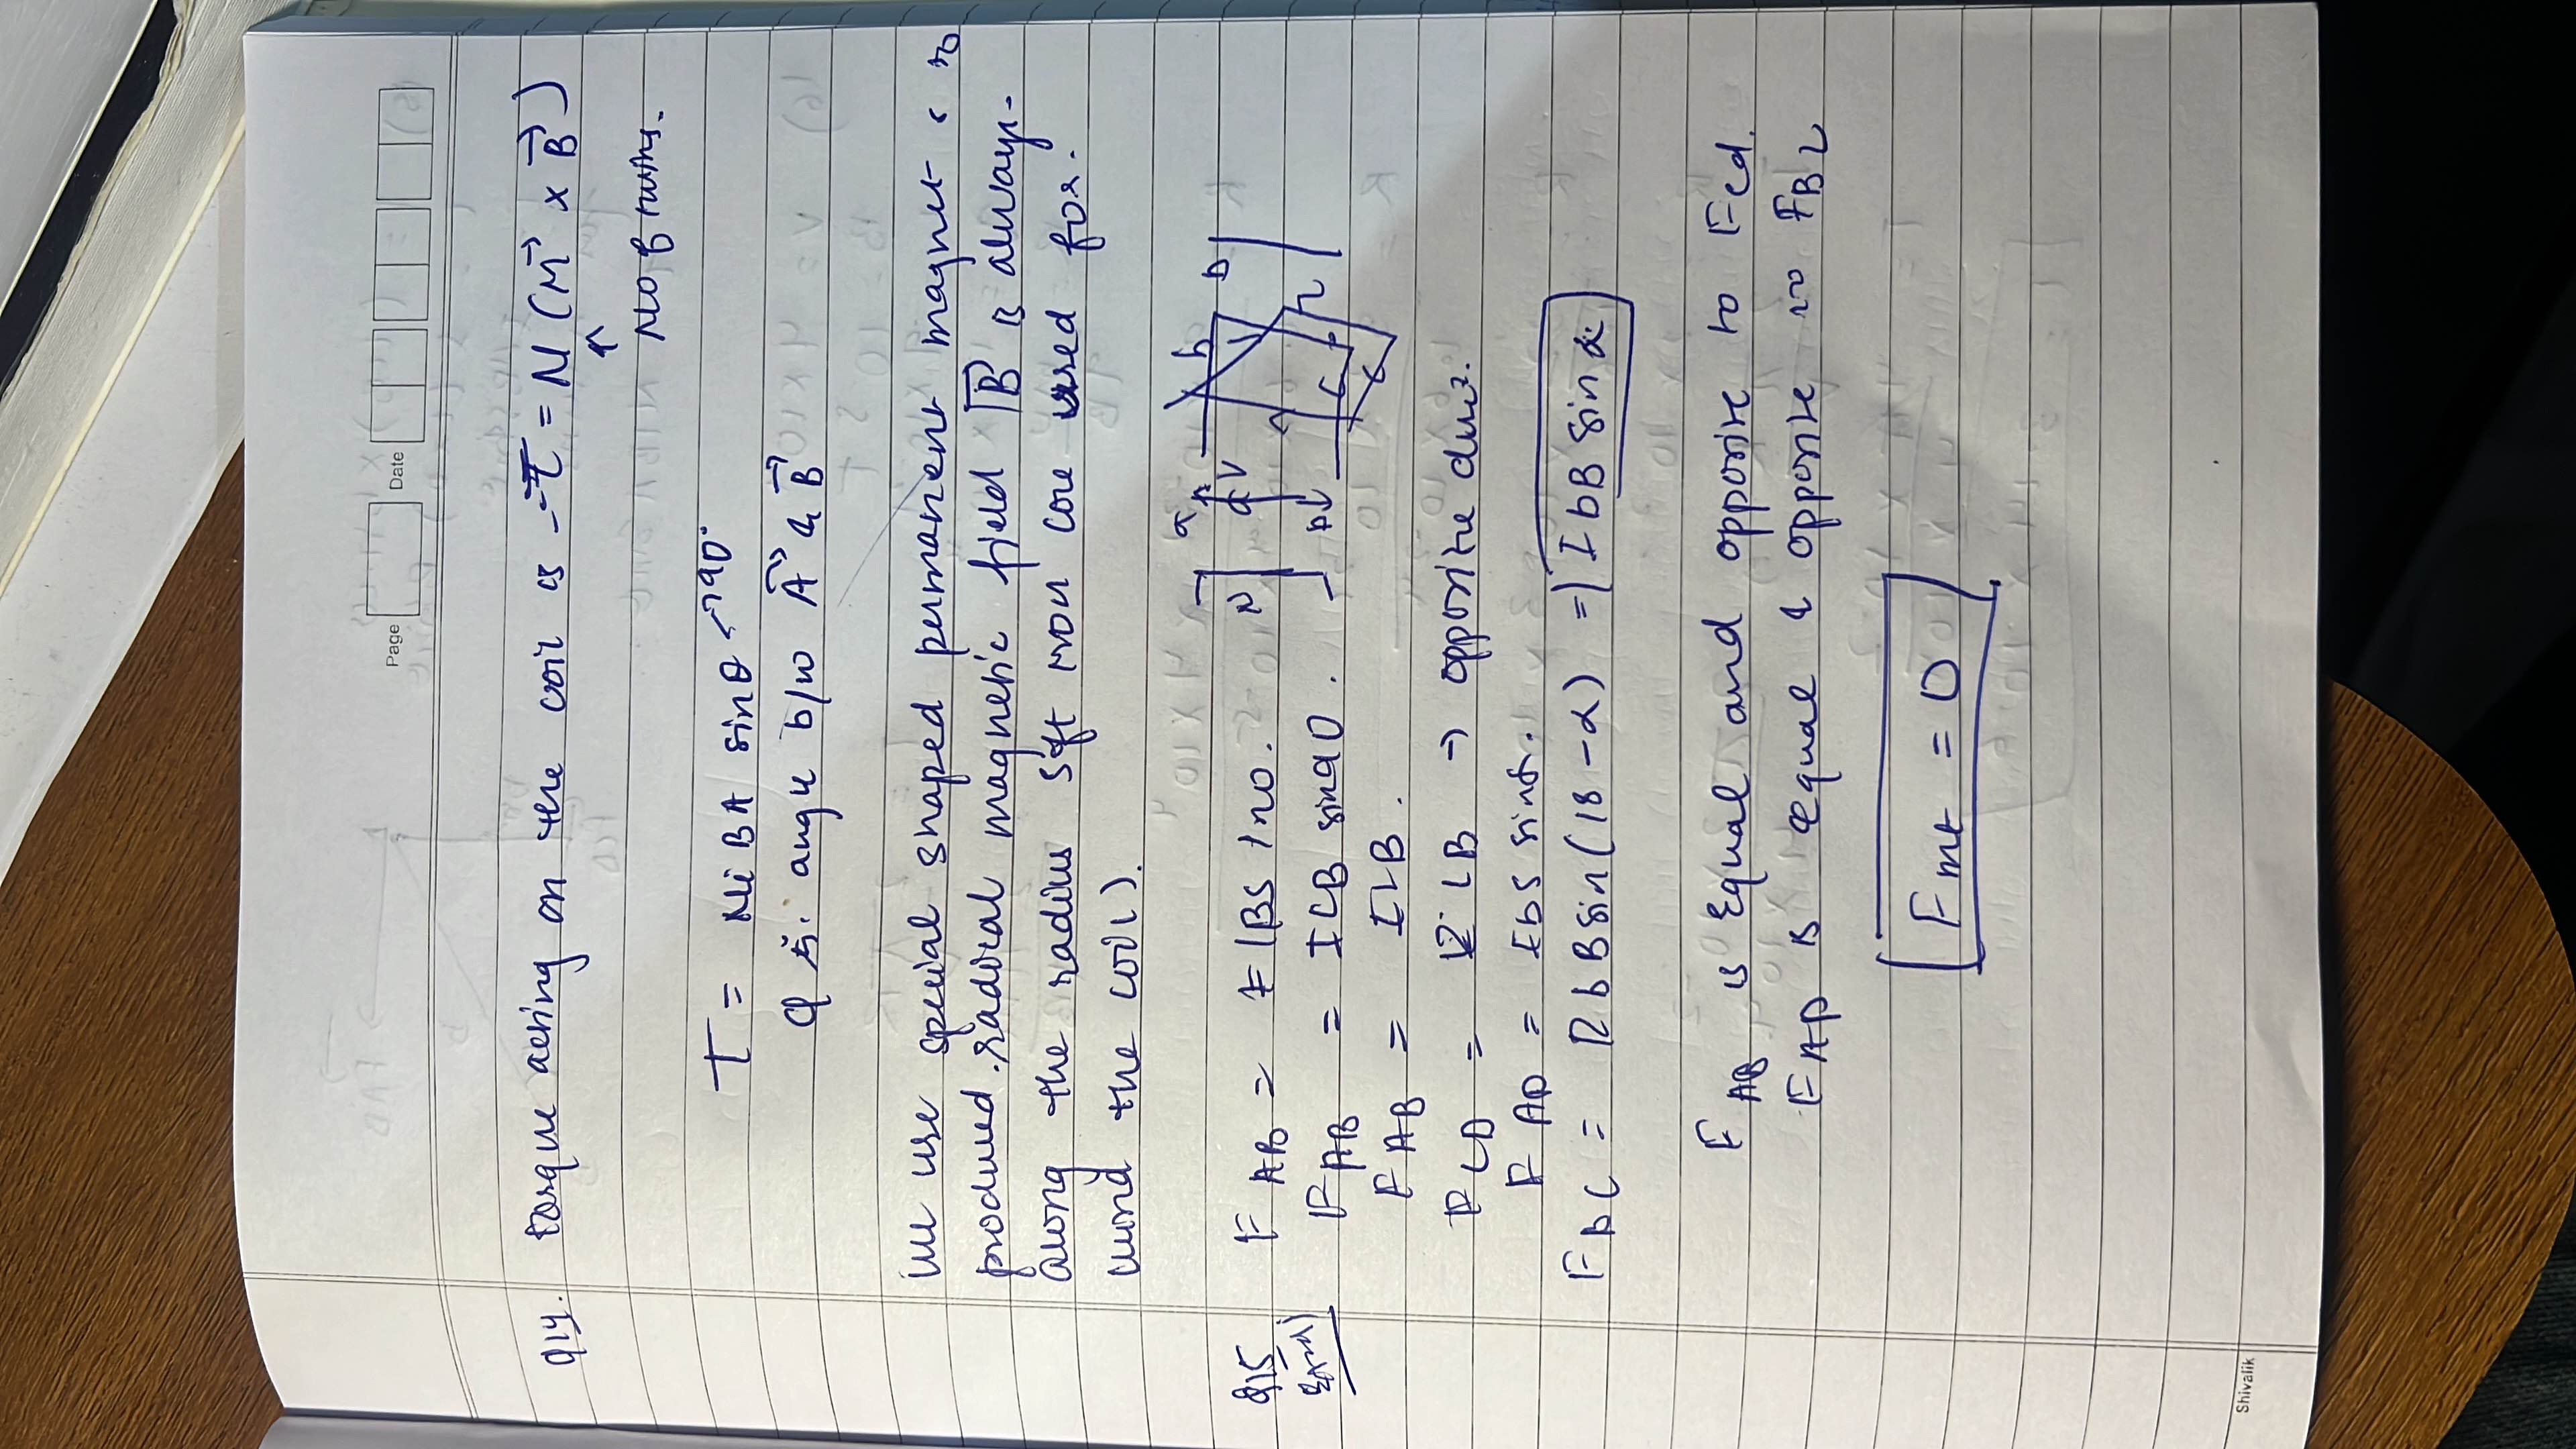 Page Date
Q14. torque acting on the coil is - τ = N (M⃗ × B⃗)
↑
No of turns.
T = NiBA sinθ 90°
angle b/w A⃗ & B⃗
we use special shaped permanent magnet
produced radial magnetic field B is always
along the radius soft iron core used for
wind the coil).
Q15
F AB =
F AB = ILB sin90.
F AB = ILB.
F CD = ILB → opposite
F AD = IbB
F BC = IbB sin(18-α) = IbB sin α
N
a
b
F AB is Equal and opposite to Fcd.
F AD is equal & opposite to FBC
Fnet = 0
Shivalik